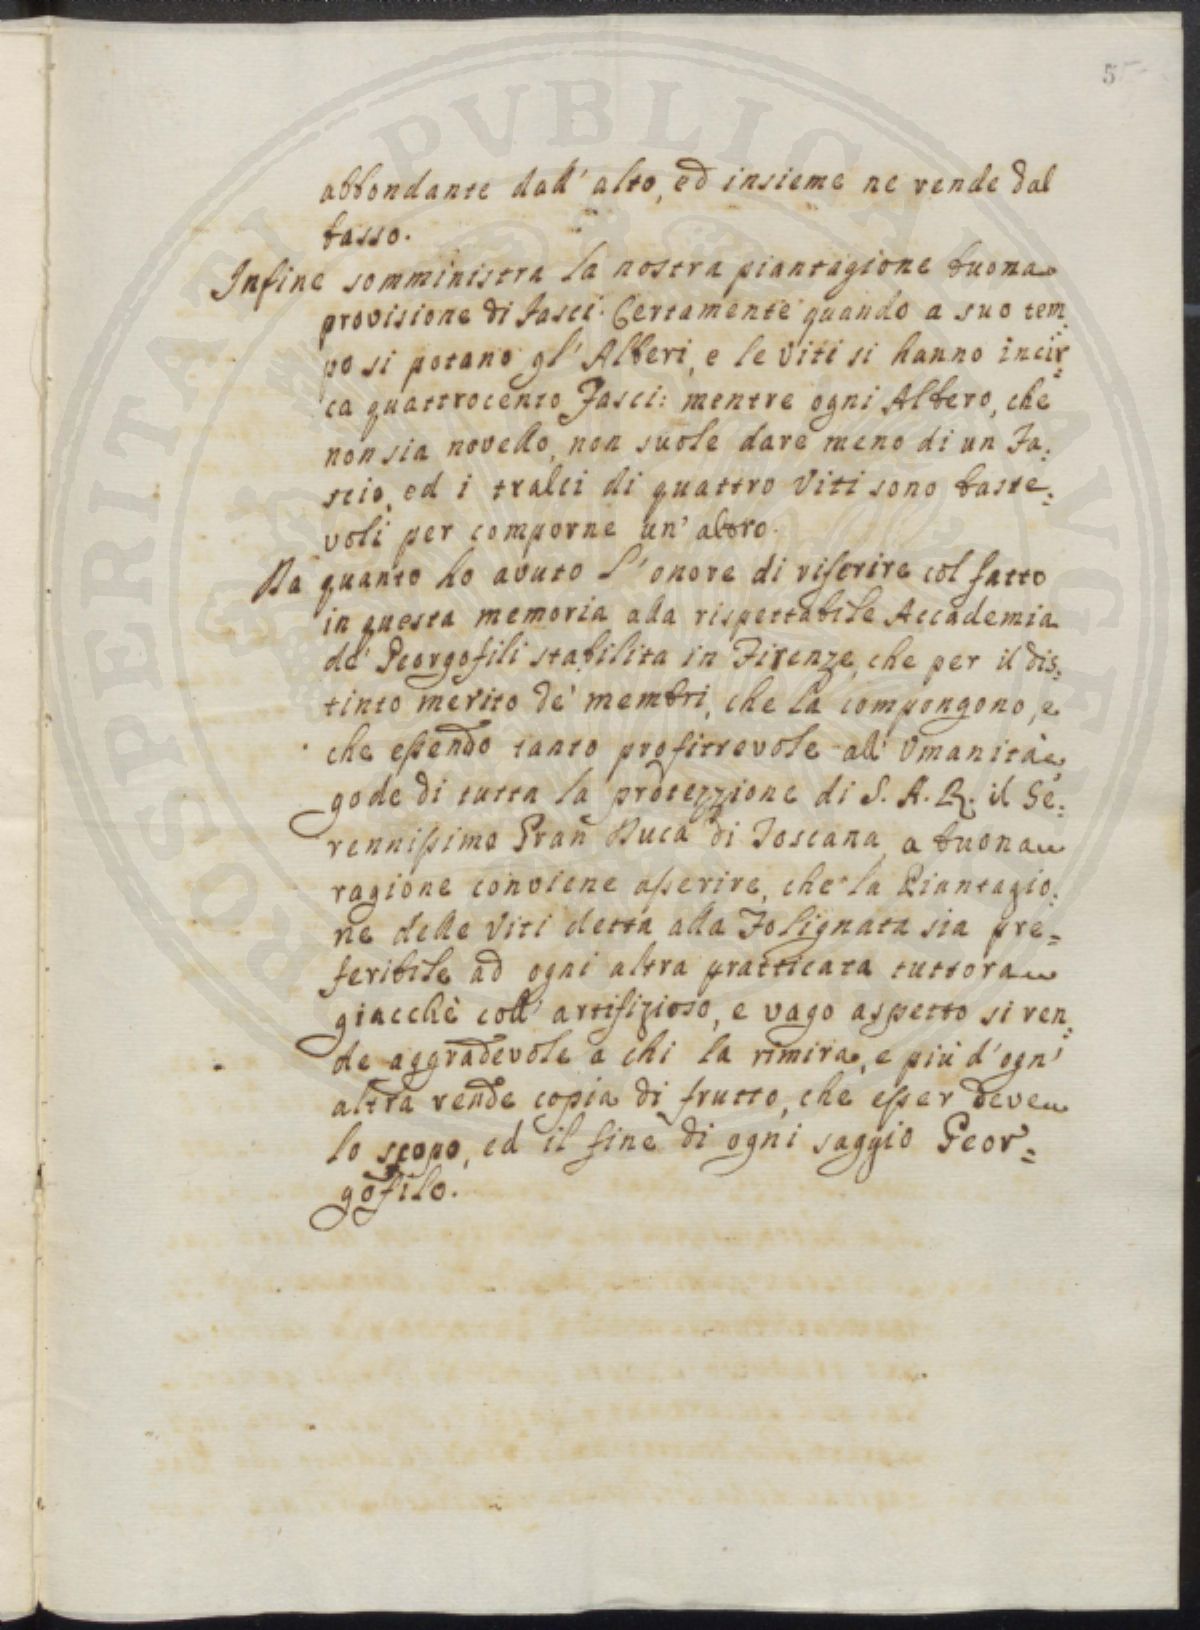 5
PROSPERITATI PVBLICAE AVGENDAE
abbondante dall' alto, ed insieme ne rende dal
basso.
Infine somministra la nostra piantagione buona
provisione di Fasci. Certamente quando a suo tem=
po si potano gl' Alberi, e le Viti si hanno incir=
ca quattrocento Fasci: mentre ogni Albero, che
non sia novello, non suole dare meno di un Fa=
scio, ed i tralci di quattro Viti sono baste=
voli per comporne un' altro.
Da quanto ho avuto l' onore di riferire col fatto
in questa memoria alla rispettabile Accademia
de' Georgofili stabilita in Firenze, che per il dis=
tinto merito de' membri, che la compongono, e
che essendo tanto profittevole all' Umanità
gode di tutta la protezzione di S. A. R. il Se=
rennissimo Gran Duca di Toscana, a buona
ragione conviene asserire, che la Piantagio=
ne delle Viti detta alla Folignata sia pre=
feribile ad ogni altra pratticata tuttora
giacchè coll' artifizioso, e vago aspetto si ren=
de aggradevole a chi la rimira, e più d' ogn'
altra rende copia di frutto, che esser deve
lo scopo, ed il fine di ogni saggio Geor=
gofilo.